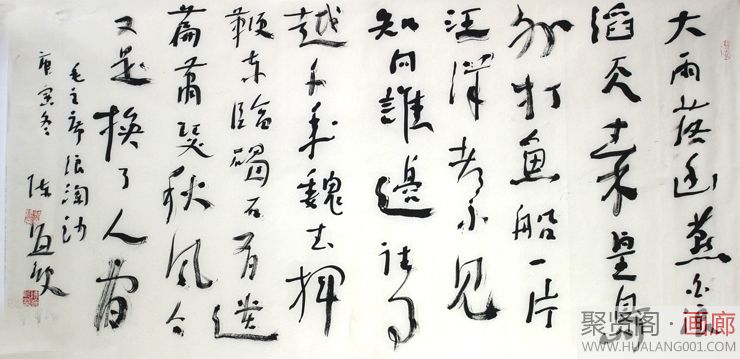 大雨落幽燕白浪
滔天秦皇島
外打魚船一片
汪洋都不見
知向誰邊往事
越千年魏武揮
鞭東臨碣石有遺
篇蕭瑟秋風今
又是換了人間
毛主席浪淘沙
庚寅冬
陳
聚贤阁·画廊
WWW.HUALANG001.COM